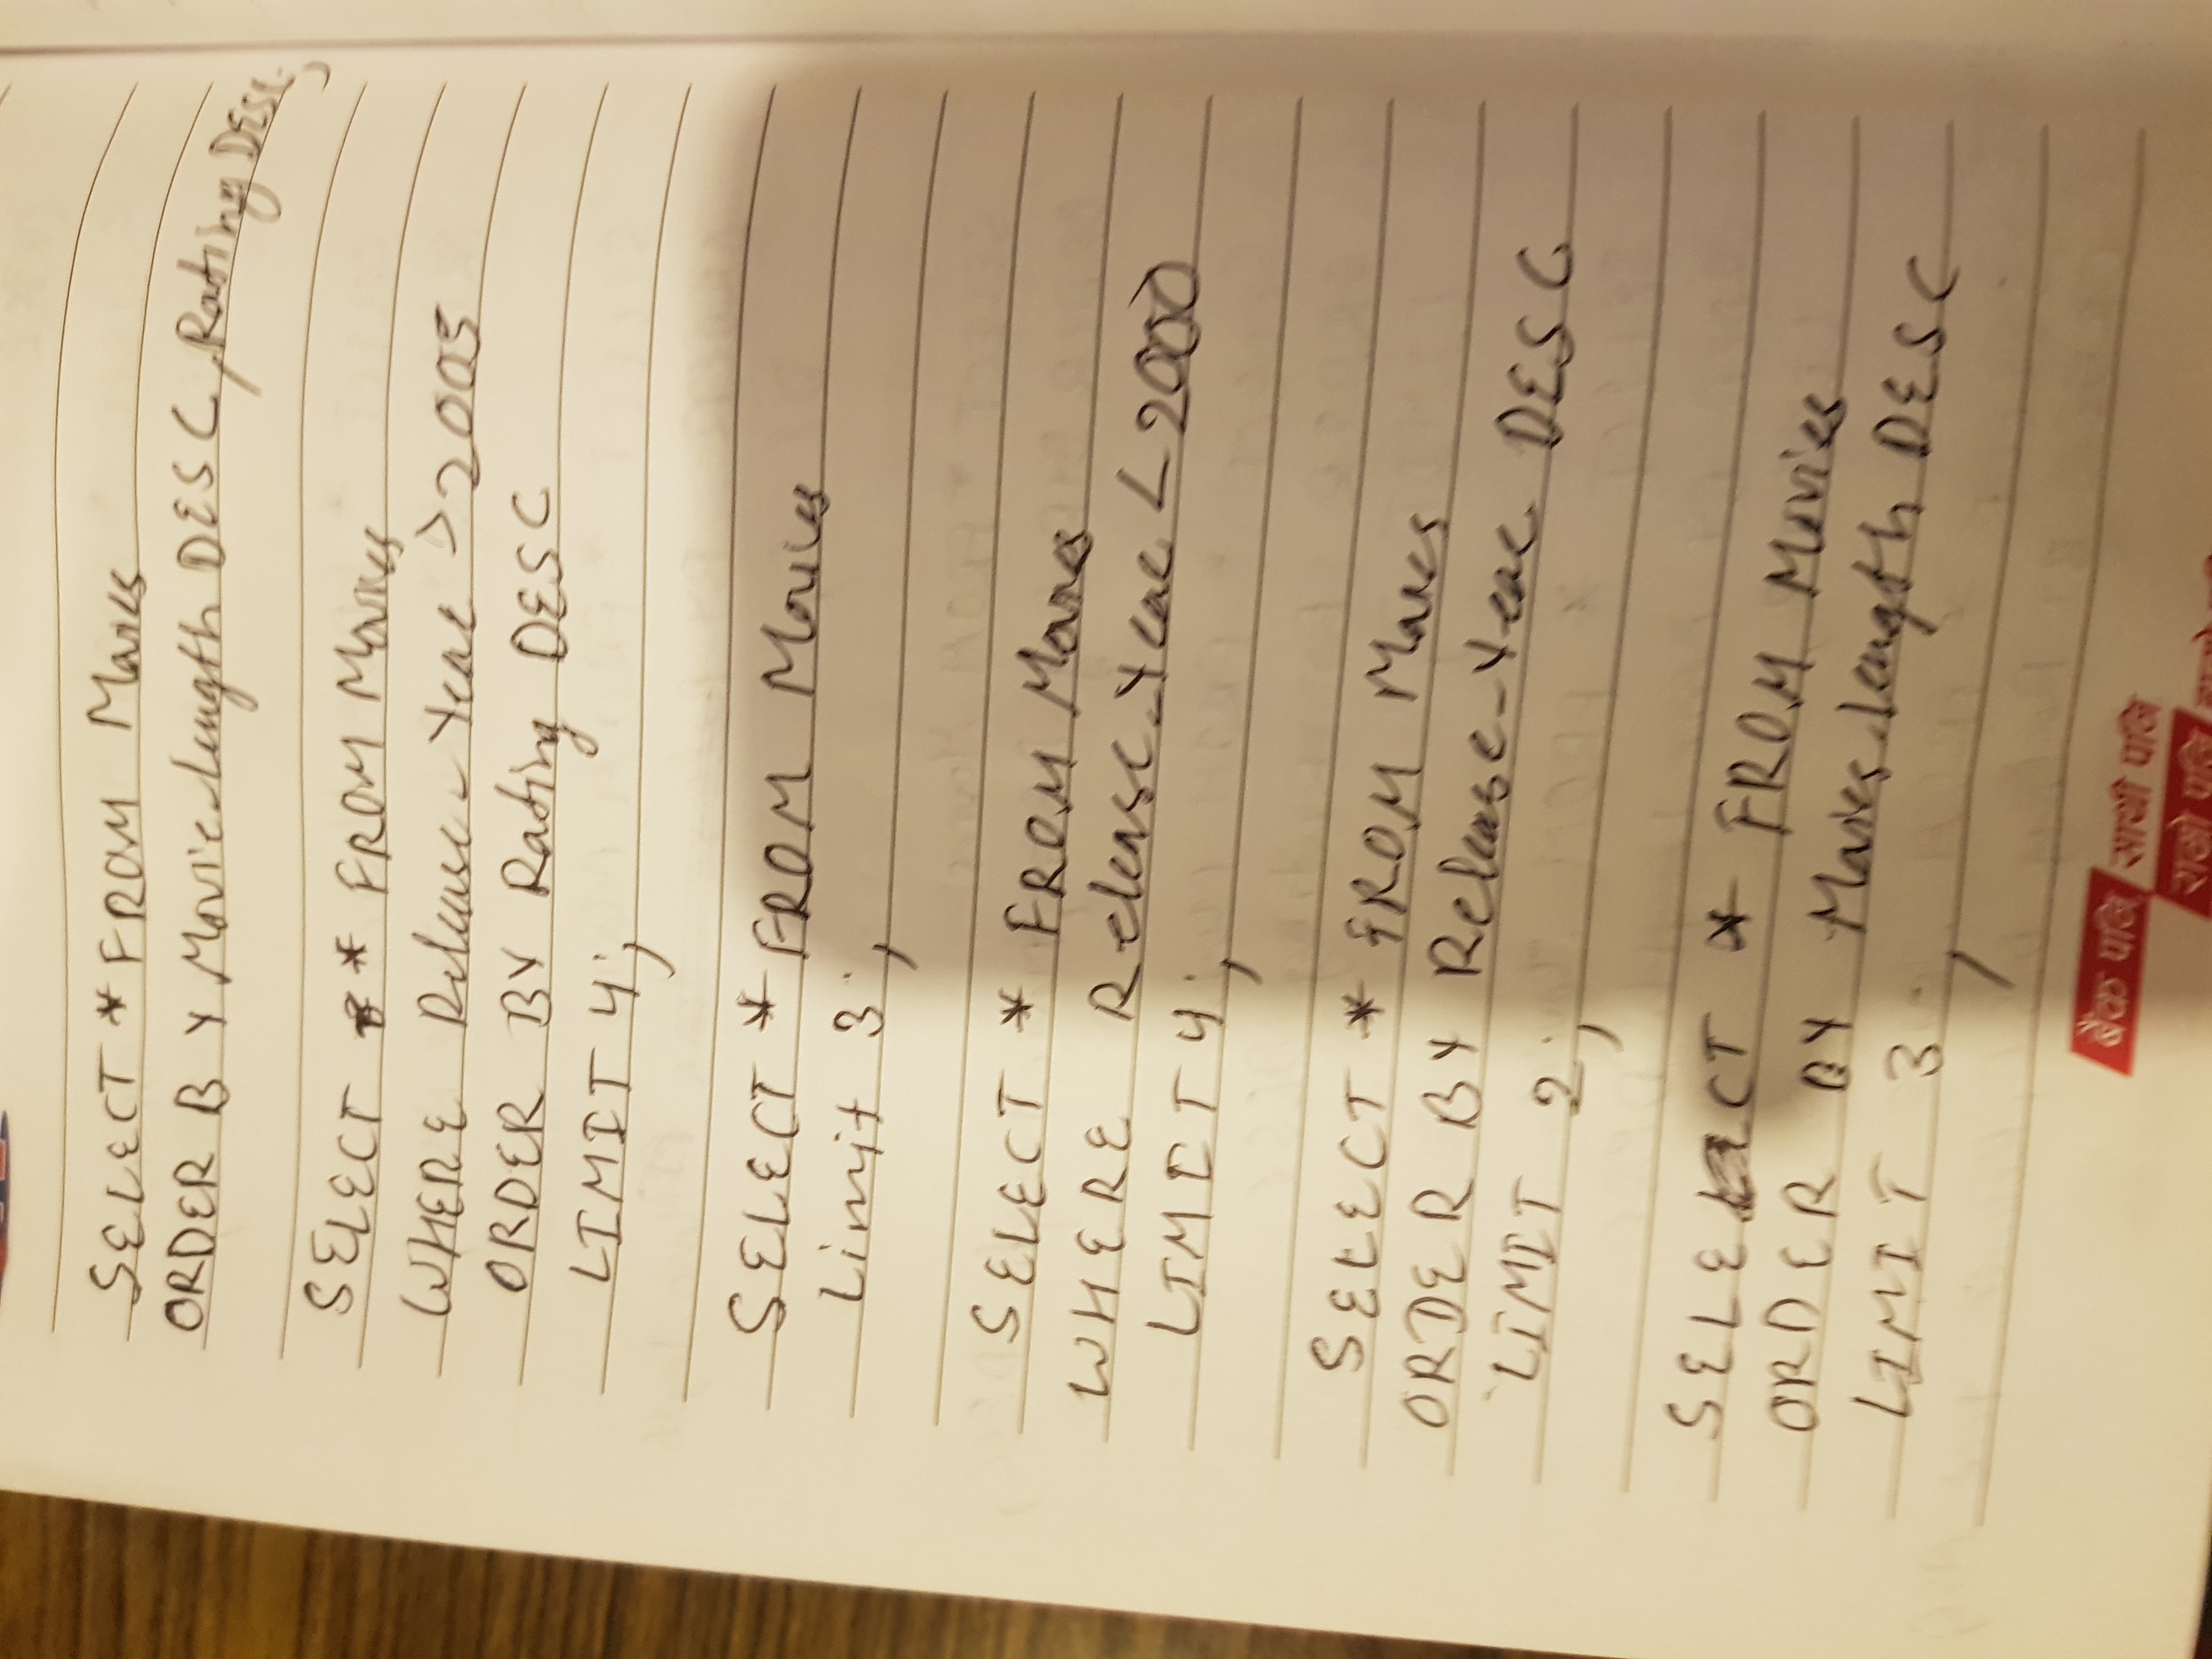 SELECT * FROM Movies
ORDER BY Movie_length DESC, Rating DESC;
SELECT * FROM Movies
WHERE Release_Year > 2005
ORDER BY Rating DESC
LIMIT 4;
SELECT * FROM Movies
Limit 3;
SELECT * FROM Movies
WHERE Release_Year < 2000
LIMIT 4;
SELECT * FROM Movies
ORDER BY Release_Year DESC
LIMIT 2;
SELECT * FROM Movies
ORDER BY Movies_length DESC
LIMIT 3;
बैंक पनि साथी पनि